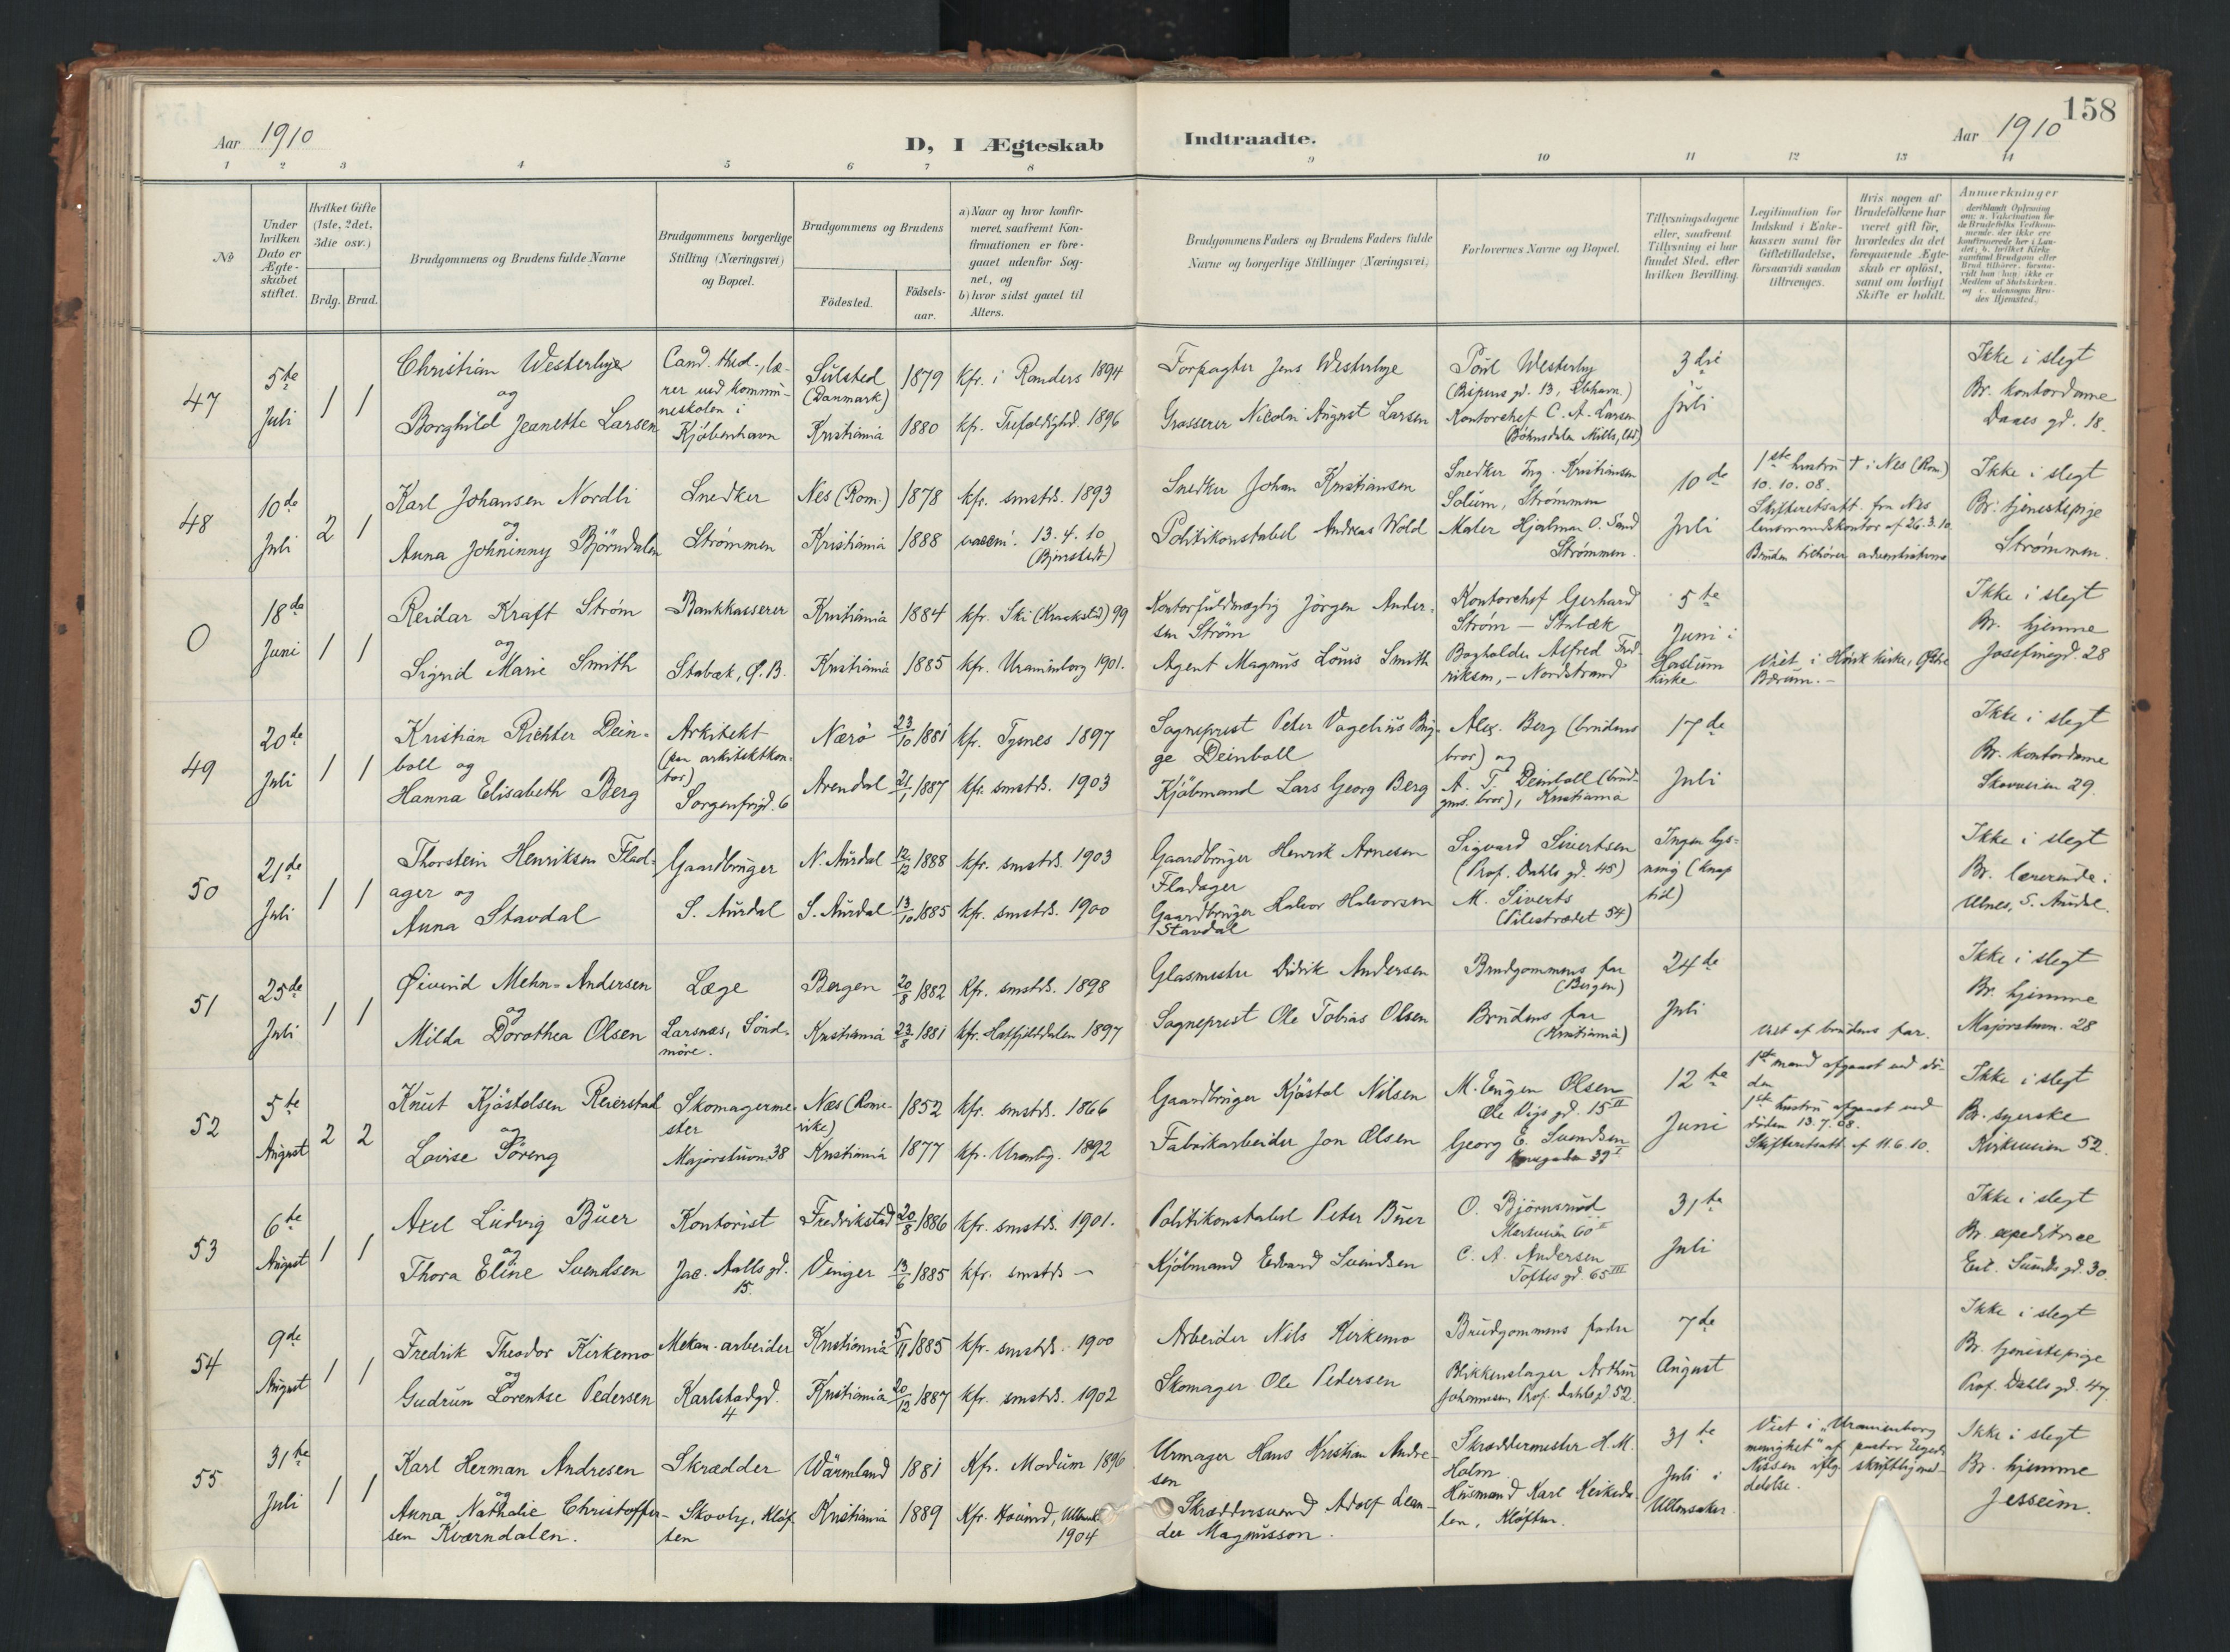 158
Aar 1910
D, I Ægteskab Indtraadte.
Aar 1910
1 2 3 4 5 6 7 8 9 10 11 12 13 14
№
Under hvilken Dato er Ægteskabet stiftet.
Hvilket Gifte (1ste, 2det, 3die osv.)
Brdg. Brud.
Brudgommens og Brudens fulde Navne
Brudgommens borgerlige Stilling (Næringsvei) og Bopæl.
Brudgommens og Brudens
Födested.
Födsels-aar.
a) Naar og hvor konfir-
meret, saafremt Kon-
firmationen er fore-
gaaet udenfor Sog-
net, og
b) hvor sidst gaaet til
Alters.
Brudgommens Faders og Brudens Faders fulde
Navne og borgerlige Stillinger (Næringsvei)
Forlovernes Navne og Bopæl.
Tillysningsdagene
eller, saafremt
Tillysning ei har
fundet Sted, efter
hvilken Bevilling.
Legitimation for
Indskud i Enke-
kassen samt for
Giftetilladelse,
forsaavidt saadan
tiltrænges.
Hvis nogen af
Brudefolkene har
været gift för,
hvorledes da det
foregaaende Ægte-
skab er oplöst,
samt om lovligt
Skifte er holdt.
Anmærkninger
47
5te Juli
1 1
Christian Westerbye
og
Borghild Jeanette Larsen
Cand. theol., læ-
rer ved kommu-
neskolen i
Kjøbenhavn
Sulsted
(Danmark)
Kristiania
1879
1880
kfr. i Randers 1894
kfr. Trefoldighd. 1896
Forpagter Jens Westerbye
Grosserer Nicolai August Larsen
Poul Westerby
Kontorchef C. A. Larsen
3die
Juli
Ikke i slegt
Br. kontordame
Daaes gd. 18.
48
10de Juli
2 1
Karl Johansen Nordli
og
Anna Johninny Björndalen
Snedker
Strømmen
Nes (Rom.)
Kristiania
1878
1888
kfr. smstds. 1893
13.4.10
Snedker Johan Kristiansen
Politikonstabel Andreas Wold
Snedker Ing. Kristiansen
Solum, Strømmen
Maler Hjalmar O. Sand
Strømmen.
10de
Juli
1ste hustru † i Nes (Rom)
10.10.08.
Skifteretsatt. fra Nes
lensmandskontor af 26.3.10
Bruden tilhører adventisterne
Ikke i slegt
Br. tjenestepige
Strømmen.
0
18de Juni
1 1
Reidar Kraft Strøm
og
Sigrid Marie Smith
Bankkasserer
Stabæk, Ø. B.
Kristiania
Kristiania
1884
1885
kfr. Ski (Kraakstad) 99
kfr. Uranienborg 1901.
Kontorfuldmægtig Jörgen Ander-
sen Strøm
Agent Magnus Louis Smith
Kontorchef Gerhard
Strøm – Stabæk
Bogholder Alfred Fred-
riksen, – Nordstrand
5te
Juni i
Haslum
kirke
Viet i Høvik kirke, Østre
Bærum. –
Ikke i slegt
Br. hjemme
Josefinegd. 28
49
20de Juli
1 1
Kristian Richter Dein-
boll og
Hanna Elisabeth Berg
Arkitekt
(paa arkitektkon-
tor)
Sorgenfrigd. 6
Nærö
Arendal
23/10 1881
21/1 1887
kfr. Tysnes 1897
kfr. smstds. 1903
Sogneprest Peter Vogelius Brüg-
ge Deinboll
Kjøbmand Lars Georg Berg
Alex. Berg (brudens
bror) og
A. T. Deinboll (brud-
gms. bror), Kristiania
17de
Juli
Ikke i slegt
Br. kontordame
Skovveien 29.
50
21de Juli
1 1
Thorstein Henriksen Flad-
ager og
Anna Stavdal
Gaardbruger
S. Aurdal
N. Aurdal
S. Aurdal
12/12 1888
13/10 1885
kfr. smstds. 1903
kfr. smstds. 1900
Gaardbruger Henrik Arnesen
Fladager
Gaardbruger Halvor Halvorsen
Stavdal
Sigvard Sivertsen
(Prof. Dahls gd. 45)
M. Siverts
(Pilestrædet 54)
Ingen lys-
ning (knap
tid)
Ikke i slegt
Br. lærerinde i
Ulnes, S. Aurdal.
51
25de Juli
1 1
Øivind Mehn-Andersen
og
Milda Dorothea Olsen
Læge
Larsnæs, Sönd-
møre.
Bergen
Kristiania
20/8 1882
23/8 1881
kfr. smstds. 1898
kfr. Hatfjelddalen 1897
Glasmester Didrik Andersen
Sogneprest Ole Tobias Olsen
Brudgommens far
(Bergen)
Brudens far
(Kristiania)
24de
Juli
Viet af brudens far.
Ikke i slegt
Br. hjemme
Majorstuvn. 28
52
5te August
2 2
Knut Kjöstolsen Reierstad
og
Lovise Söreng
Skomagerme-
ster
Majorstuvn 38
Næs (Rome-
rike)
Kristiania
1852
1877
kfr. smstds. 1866
kfr. Uranbg. 1892
Gaardbruger Kjöstol Nilsen
Fabrikarbeider Jon Olsen
M. Eugen Olsen
Ole Vigs gd. 15 II
Georg E. Svendsen
12te
Juni
1ste mand afgaaet ved dö-
den
1ste hustru afgaaet ved
døden 13.7.08.
Skifteretsatt. af 11.6.10.
Ikke i slegt
Br. syerske
Kirkeveien 52.
53
6te August
1 1
Axel Ludvig Buer
og
Thora Eline Svendsen
Kontorist
Jac. Aalls gd.
15.
Fredrikstad
Vinger
20/8 1886
13/6 1885
kfr. smstds. 1901.
kfr. smstds –
Politikonstabel Peter Buer
Kjøbmand Edvard Svendsen
O. Bjørnsrud
C. A. Andersen
Toftes gd. 65 III
31te
Juli
Ikke i slegt
Br. expeditrice
Eil. Sundts gd. 30.
54
9de August
1 1
Fredrik Theodor Kirkemo
og
Gudrun Lorentse Pedersen
Mekan. arbeider
Karlstadgd.
4
Kristiania
Kristiania
5/11 1885
20/12 1887
kfr. smstds. 1900
kfr. smstds. 1902
Arbeider Nels Kirkemo
Skomager Ole Pedersen
Brudgommens fader
Blikkenslager Arthur
Johannesen, Prof. Dahls gd 52.
7de
August
Ikke i slegt
Br. tjenestepige
Prof. Dahls gd. 47.
55
31te Juli
1 1
Karl Herman Andresen
og
Anna Nathalie Christoffer-
sen Kværndalen.
Skrædder
Skovly, Kløf-
ten
Wärmland
Kristiania
1881
1889
Kfr. Modum 1896
Kfr. Hovind, Ullensak.
1904
Urmager Hans Kristian Andre-
sen
Skræddersvend Adolf Lean-
der Magnusson.
Skræddermester H. M.
Holm
Husmand Karl
Kløften.
31te
Juli i
Ullensaker
Viet i "Uranienborg
menighet" af pastor
Nissen iflg. skriftlig med-
delelse.
Ikke i slegt
Br. hjemme
Jessheim.